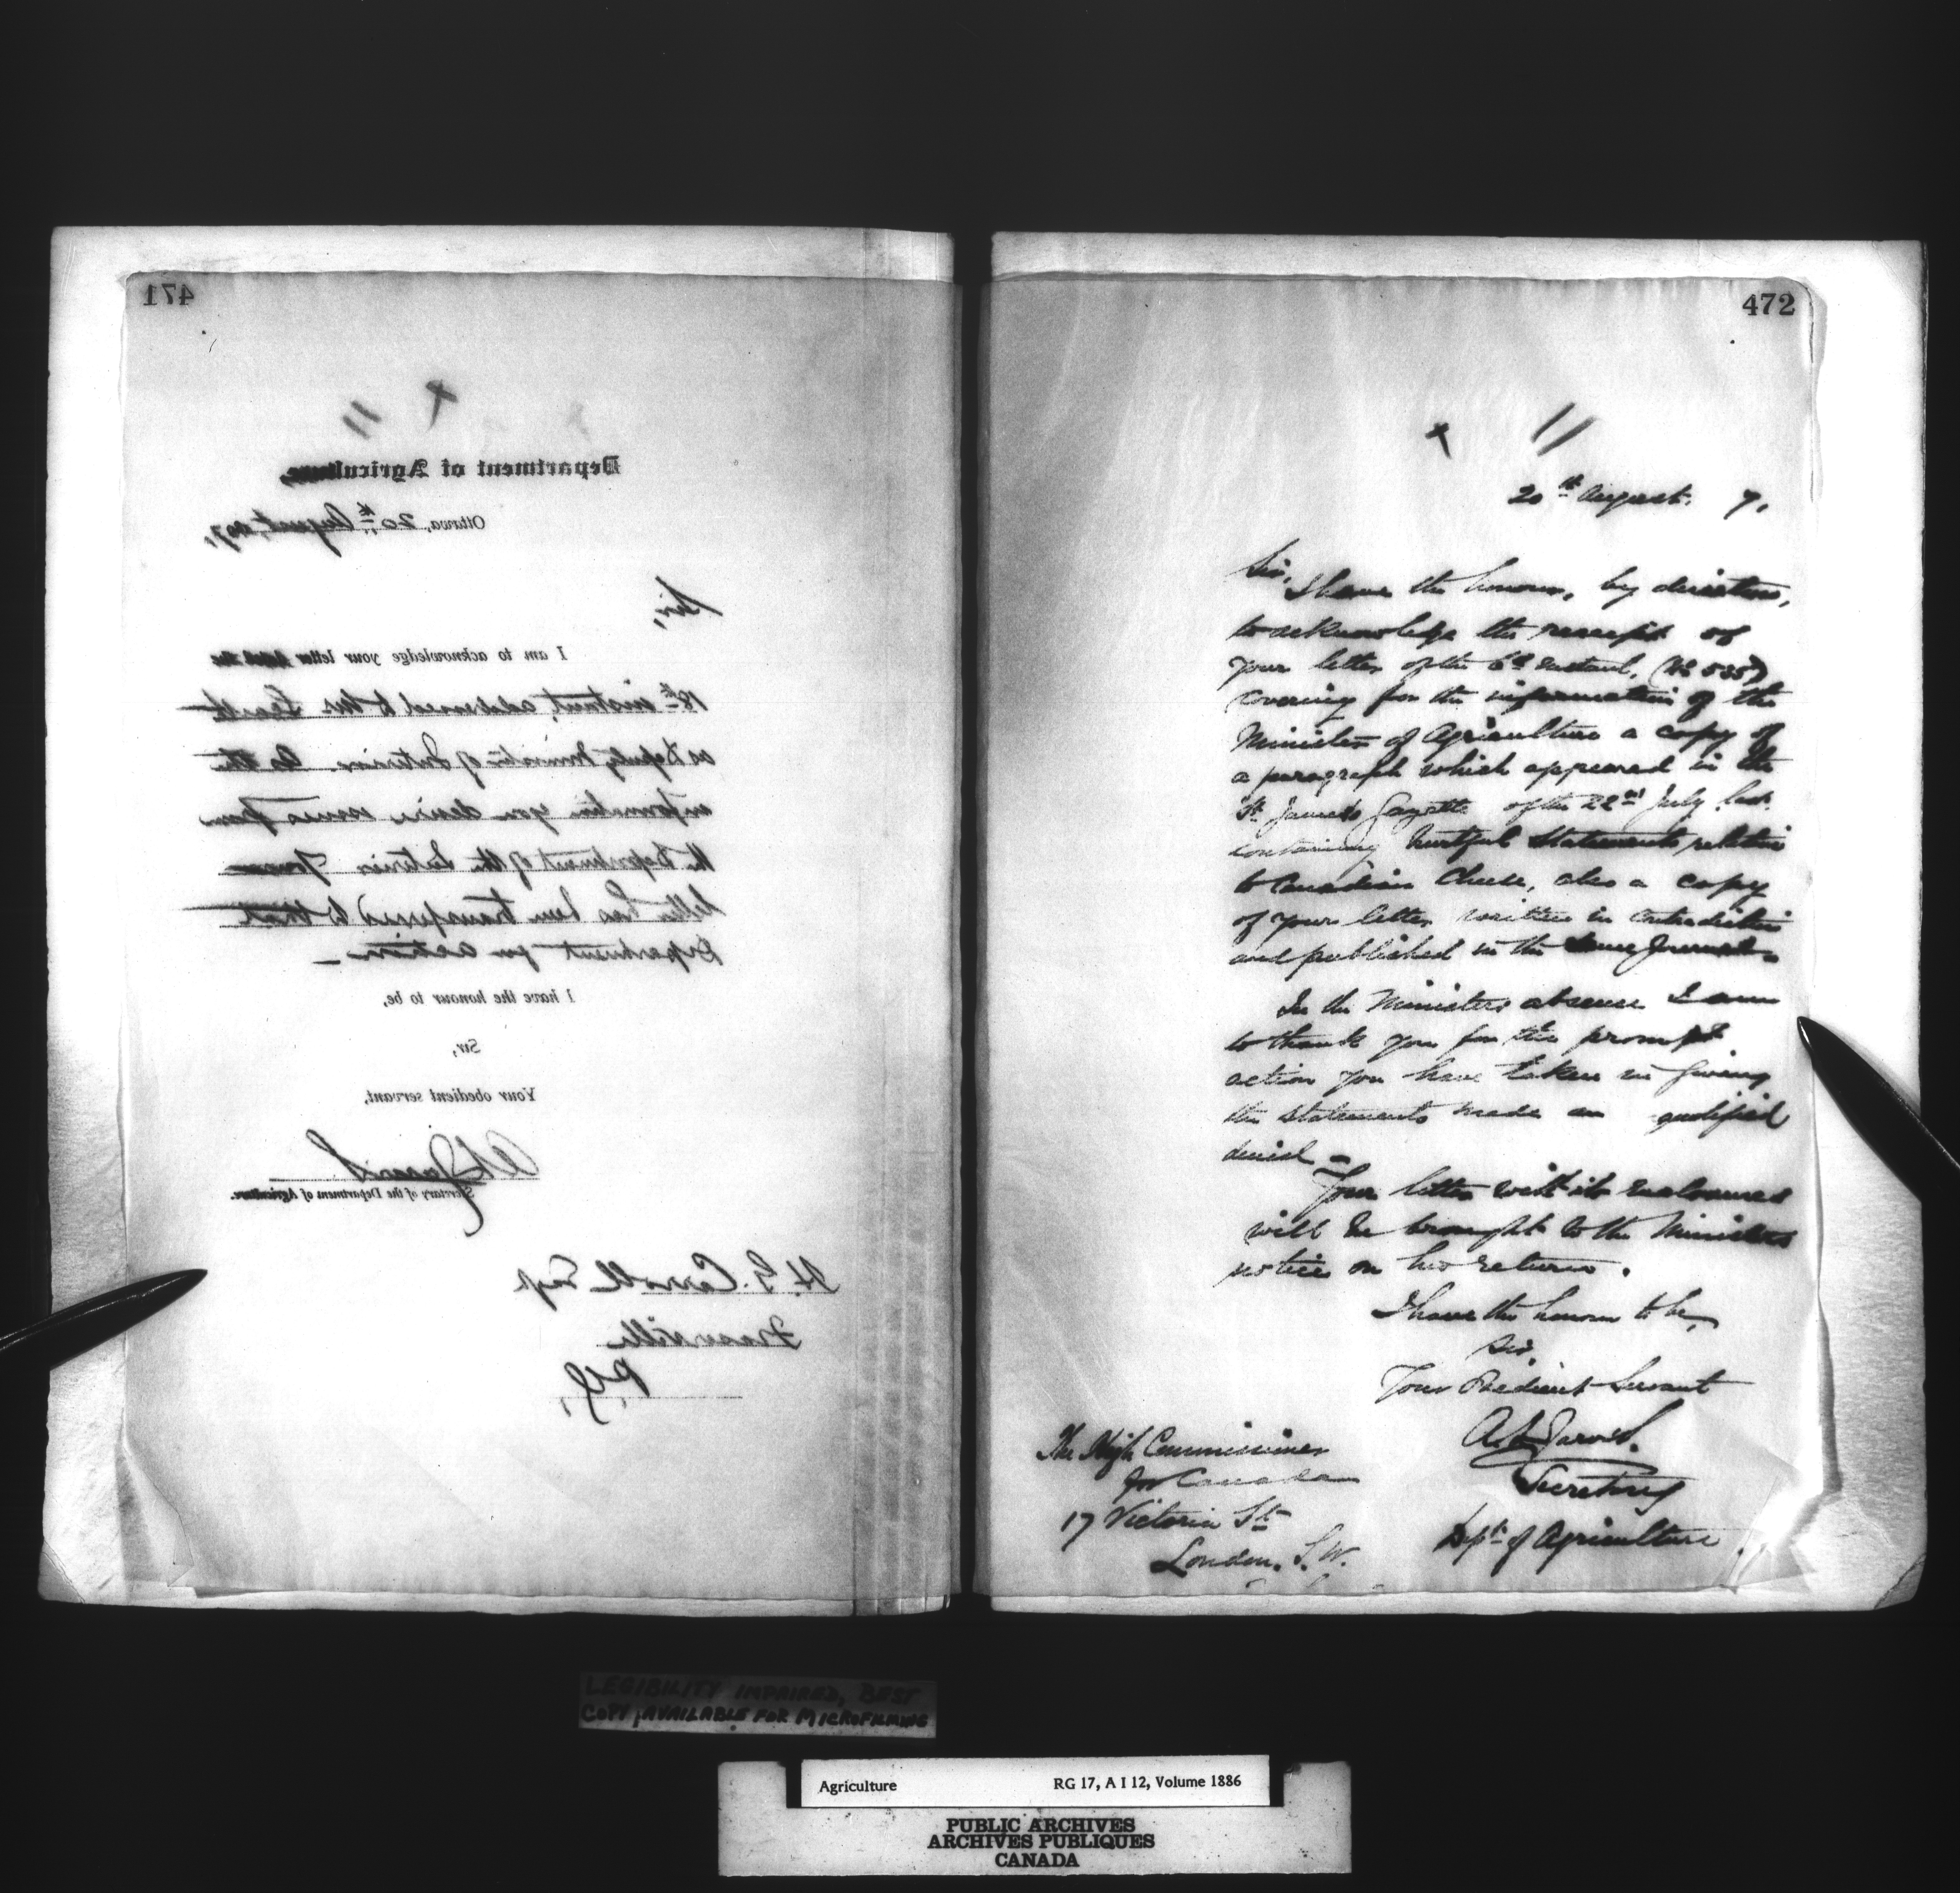 471
Department of Agriculture,
Ottawa, 20th August, 1897,
Sir,
I am to acknowledge your letter dated the
18th instant, addressed to Mr.
as Deputy Minister of Interior. As the
information you desire issues from
the Department of the Interior Your
letter has been transferred to that
Department for action -
I have the honour to be,
Sir,
Your obedient servant,
A L Jarvis
Secretary of the Department of Agriculture.
H. G. Carroll Esq
Fraserville
P.Q,
472
20th August. 7,
Sir,
I have the honour, by direction,
to acknowledge the receipt of
your letter of the 6th instant, (No 535)
covering for the information of the
Minister of Agriculture a copy of
a paragraph which appeared in the
St James Gazette of the 22nd July last
containing hurtful statements relative
to Canadian Cheese, also a copy
of your letter written in contradiction
and published in the same Journal.
In the Ministers absence I am
to thank you for the prompt
action you have taken in giving
the statements made an qualified
denial -
Your letter with its enclosures
will be brought to the Ministers
notice on his return.
I have the honour to be,
Sir,
Your Obedient Servant
A L Jarvis.
Secretary
Dept of Agriculture
The High Commissioner
for Canada
17 Victoria St
London. S.W.
LEGIBILITY IMPAIRED, BEST
COPY AVAILABLE FOR MICROFILMING
Agriculture RG 17, A I 12, Volume 1886
PUBLIC ARCHIVES
ARCHIVES PUBLIQUES
CANADA